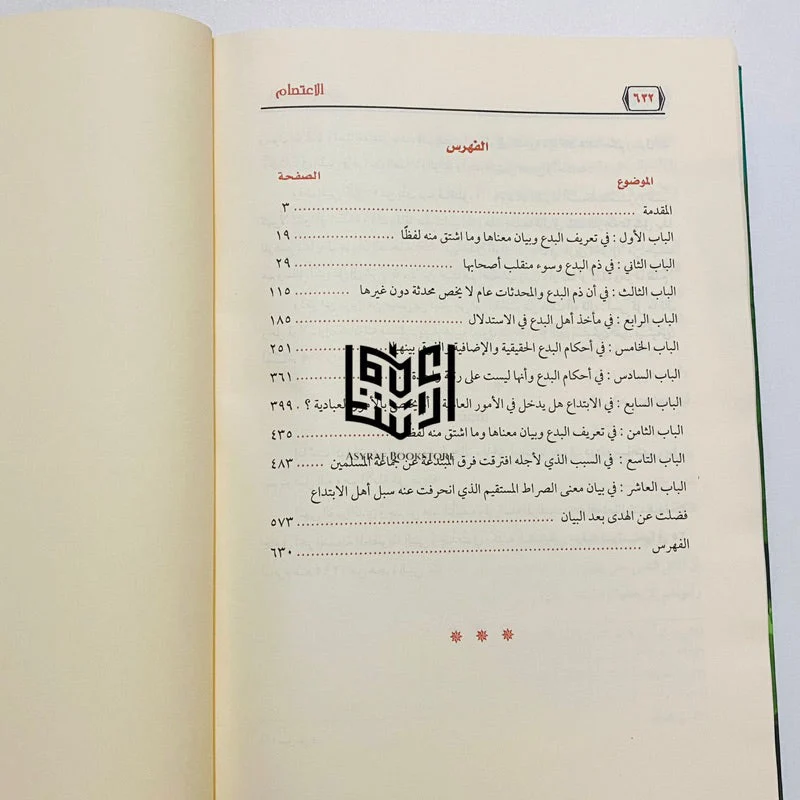 الاعتصام ٦٣٢
الفهرس
الموضوع الصفحة
المقدمة ٣
الباب الأول : في تعريف البدع وبيان معناها وما اشتق منه لفظًا ١٩
الباب الثاني : في ذم البدع وسوء منقلب أصحابها ٢٩
الباب الثالث : في أن ذم البدع والمحدثات عام لا يخص محدثة دون غيرها ١١٥
الباب الرابع : في مأخذ أهل البدع في الاستدلال ١٨٥
الباب الخامس : في أحكام البدع الحقيقية والإضافية والفرق بينهما ٢٥١
الباب السادس : في أحكام البدع وأنها ليست على رتبة واحدة ٣٦١
الباب السابع : في الابتداع هل يدخل في الأمور العادية أم يختص بالأمور العبادية ؟ ٣٩٩
الباب الثامن : في تعريف البدع وبيان معناها وما اشتق منه لفظًا ٤٣٥
ASYRAF BOOKSTORE
الباب التاسع : في السبب الذي لأجله افترقت فرق المبتدعة عن جماعة المسلمين ٤٨٣
الباب العاشر : في بيان معنى الصراط المستقيم الذي انحرفت عنه سبل أهل الابتداع
فضلت عن الهدى بعد البيان ٥٧٣
الفهرس ٦٣٠